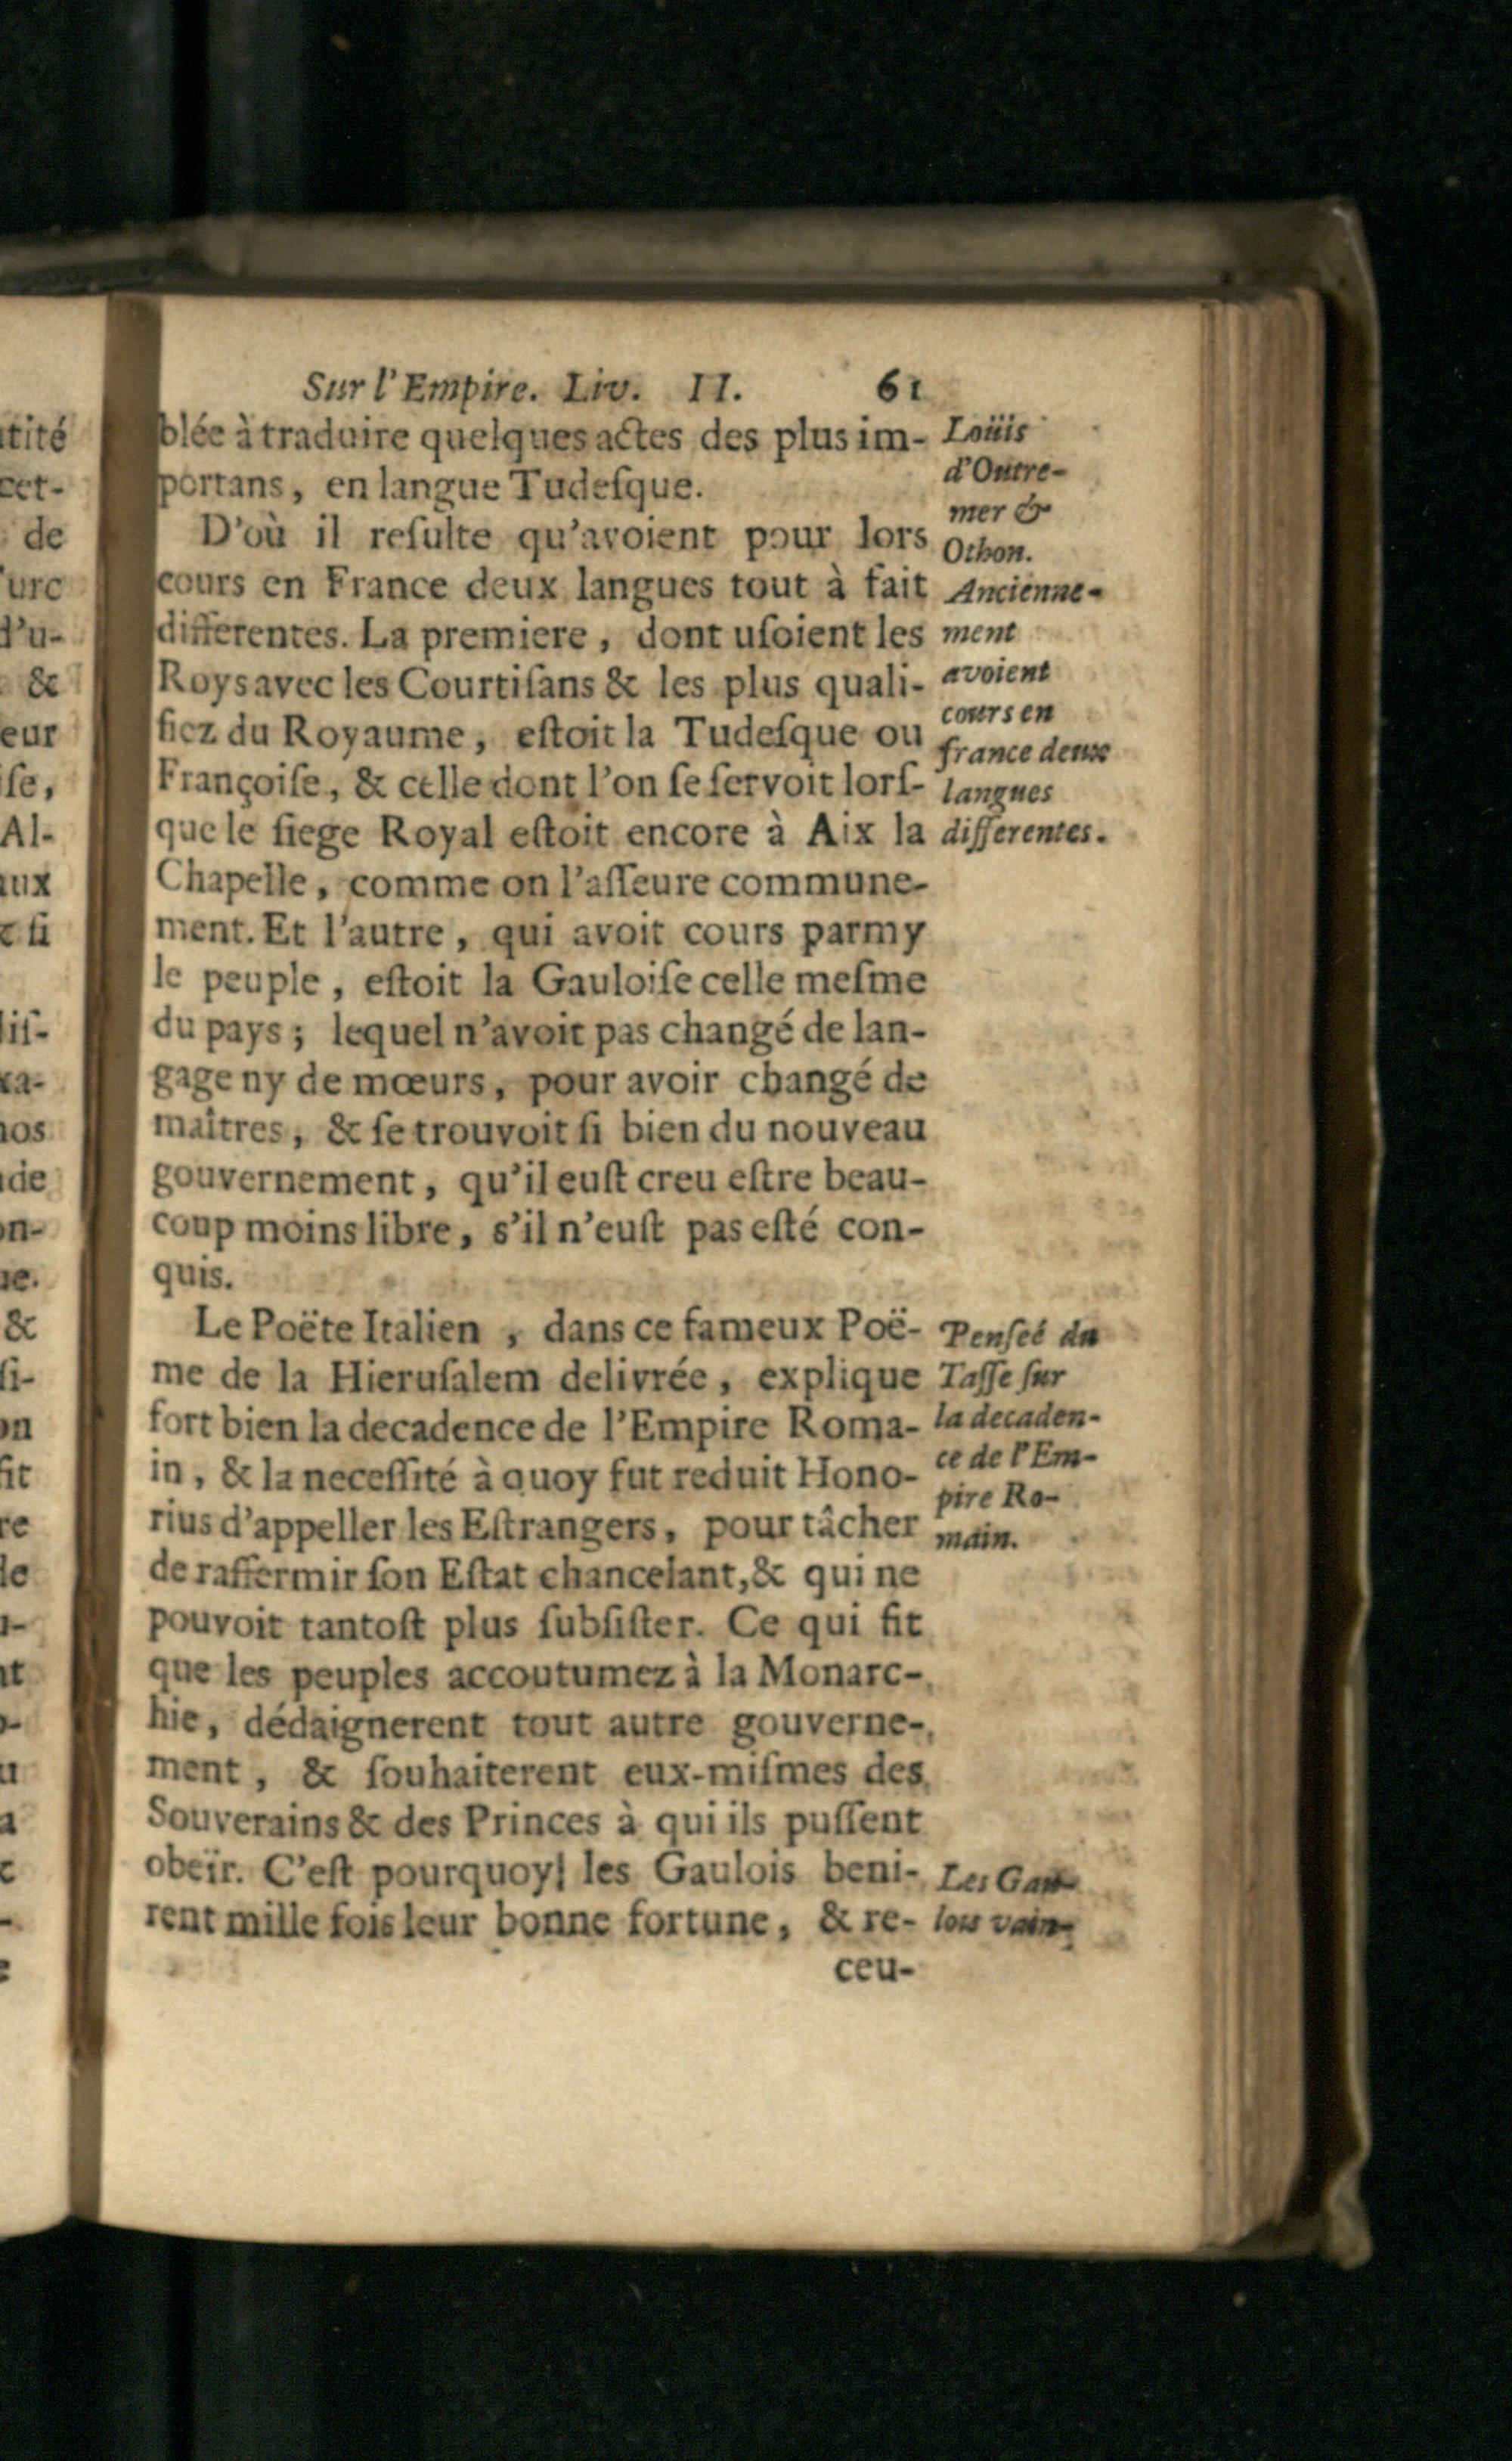 Sur l'Empire. Liv. II. 61
blée à traduire quelques actes des plus im-
portans, en langue Tudeſque.
D'où il reſulte qu'avoient pour lors
cours en France deux langues tout à fait
differentes. La premiere, dont uſoient les
Roys avec les Courtiſans & les plus quali-
fiez du Royaume, eſtoit la Tudeſque ou
Françoiſe, & celle dont l'on ſe ſervoit lorſ-
que le ſiege Royal eſtoit encore à Aix la
Chapelle, comme on l'aſſeure commune-
ment. Et l'autre, qui avoit cours parmy
le peuple, eſtoit la Gauloiſe celle meſme
du pays; lequel n'avoit pas changé de lan-
gage ny de mœurs, pour avoir changé de
maîtres, & ſe trouvoit ſi bien du nouveau
gouvernement, qu'il euſt creu eſtre beau-
coup moins libre, s'il n'euſt pas eſté con-
quis.
Le Poëte Italien, dans ce fameux Poë-
me de la Hieruſalem delivrée, explique
fort bien la decadence de l'Empire Roma-
in, & la neceſſité à quoy fut reduit Hono-
rius d'appeller les Eſtrangers, pour tâcher
de raffermir ſon Eſtat chancelant, & qui ne
pouvoit tantoſt plus ſubſiſter. Ce qui fit
que les peuples accoutumez à la Monarc-
hie, dédaignerent tout autre gouverne-
ment, & ſouhaiterent eux-miſmes des
Souverains & des Princes à qui ils puſſent
obeïr. C'eſt pourquoy les Gaulois beni-
rent mille fois leur bonne fortune, & re-
ceu-
Loüis
d'Outre-
mer &
Othon.
Ancienne-
ment
avoient
cours en
france deux
langues
differentes.
Penſeé du
Taſſe ſur
la decaden-
ce de l'Em-
pire Ro-
main.
Les Gau-
lois vain-
tité
cet-
de
urc
d'u-
&
eur
iſe,
Al-
aux
& ſi
liſ-
xa-
nos
de
on-
ue.
&
ſi-
on
fit
re
de
u-
nt
o-
u
a